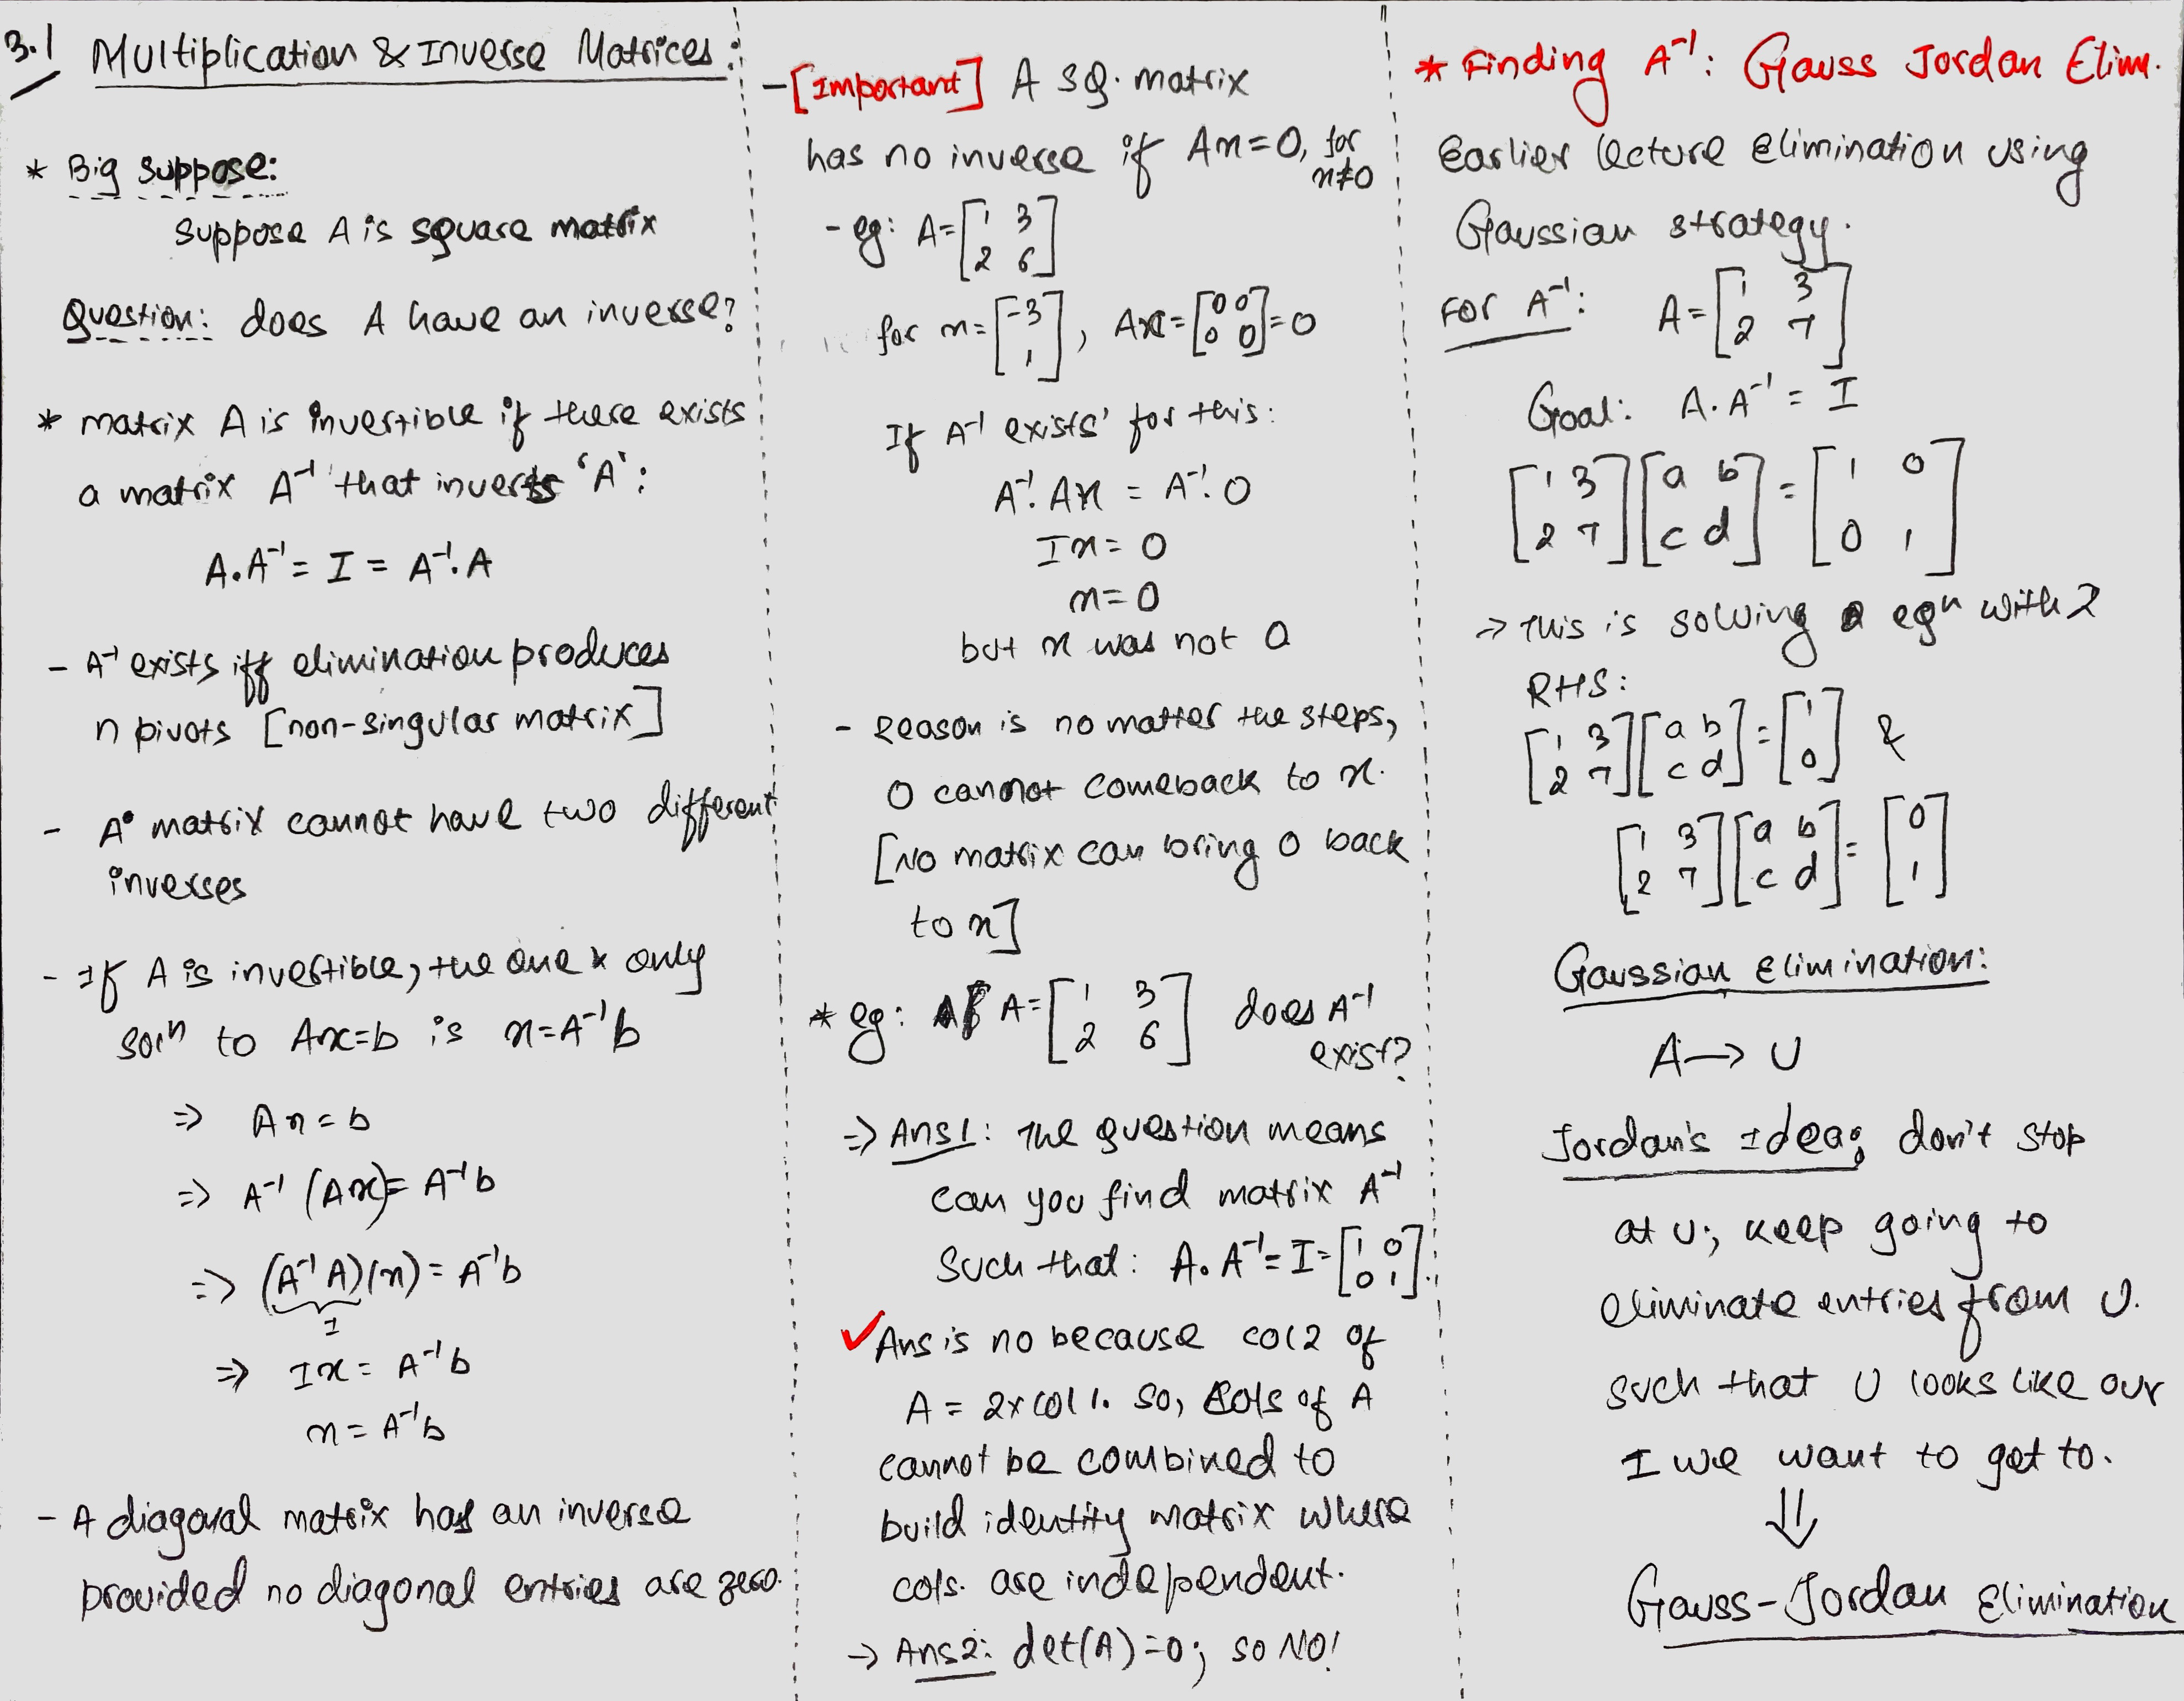 3.1 Multiplication & Inverse Matrices:
* Big suppose:
suppose A is square matrix
Question: does A have an inverse?
* matrix A is invertible if there exists
a matrix A⁻¹ that inverts 'A':
A.A⁻¹ = I = A⁻¹.A
- A⁻¹ exists iff elimination produces
n pivots [non-singular matrix]
- A matrix cannot have two different
inverses
- If A is invertible, the one & only
solⁿ to Ax=b is x=A⁻¹b
⇒ Ax=b
⇒ A⁻¹(Ax)= A⁻¹b
⇒ (A⁻¹A)(x) = A⁻¹b
I
⇒ Ix = A⁻¹b
x = A⁻¹b
- A diagonal matrix has an inverse
provided no diagonal entries are zero.
- [Important] A sq. matrix
has no inverse if Ax=0, for
x≠0
- eg: A=[1 3
2 6]
for x=[-3
1], Ax=[0 0
0 0]=0
If A⁻¹ 'exists' for this:
A⁻¹.Ax = A⁻¹.0
Ix = 0
x=0
but x was not 0
- Reason is no matter the steps,
0 cannot comeback to x.
[No matrix can bring 0 back
to x]
* eg: A=[1 3
2 6] does A⁻¹
exist?
⇒ Ans1: The question means
can you find matrix A⁻¹
Such that: A.A⁻¹=I=[1 0
0 1].
✓ Ans is no because col2 of
A = 2x col 1. So, cols of A
cannot be combined to
build identity matrix where
cols. are independent.
→ Ans2: det(A)=0; so NO!
* Finding A⁻¹: Gauss Jordan Elim.
Earlier lecture elimination using
Gaussian strategy.
For A⁻¹: A=[1 3
2 7]
Goal: A.A⁻¹ = I
[1 3
2 7][a b
c d]=[1 0
0 1]
→ This is solving a eqⁿ with 2
RHS:
[1 3
2 7][a b
c d]=[1
0] &
[1 3
2 7][a b
c d]=[0
1]
Gaussian elimination:
A → U
Jordan's Idea; don't stop
at U; keep going to
eliminate entries from U.
such that U looks like our
I we want to get to.
⇓
Gauss-Jordan Elimination